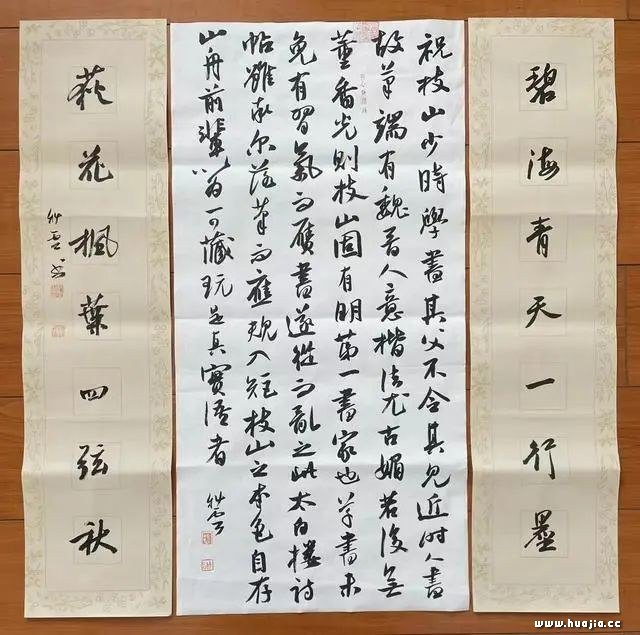 碧海青天一行墨
祝枝山少時學書其父不令其見近時人書
故筆端有魏晉人意楷法尤古媚若後無
董香光則枝山固有明第一書家也草書未
免有習氣而贋書遂從而亂之此太白樓詩
帖雖率尔落筆而應規入矩枝山之本色自存
山舟前輩以为可藏玩是真實語者
荻花楓葉四弦秋
www.huajia.cc